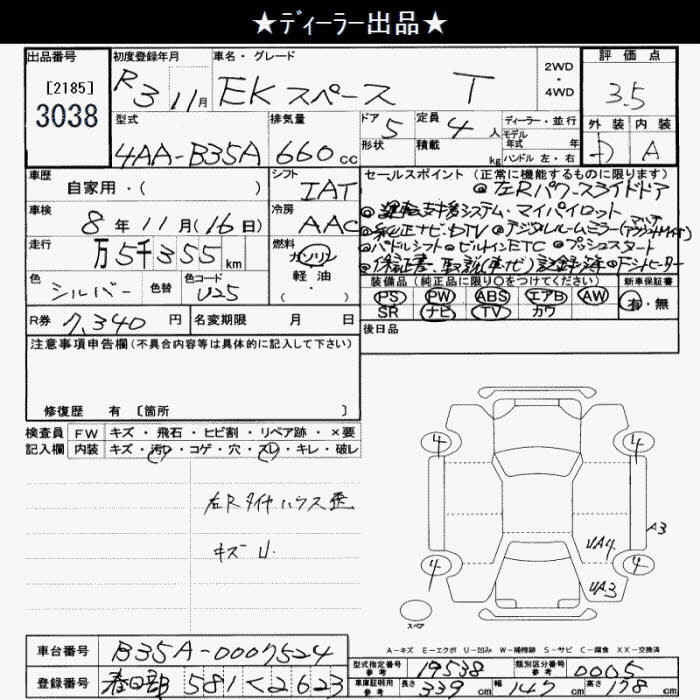 ★ディーラー出品★
出品番号
[2185]
3038
初度登録年月
R3 11月
車名・グレード
EKスペース T
2WD
・
4WD
評価点
3.5
型式
4AA-B35A
排気量
660cc
ドア
5
形状
定員
4人
積載
kg
ディーラー・並行
モデル
年式 年
ハンドル 左・右
外装
内装
A
車歴
自家用・( )
シフト
IAT
車検
8年11月(16日)
冷房
AAC
走行
万5千355km
燃料
ガソリン
軽油
・( )
色
シルバー
色替
色コード
U25
セールスポイント (正常に機能するものに限ります)
◎左Rパワースライドドア
◎運転支援システム・マイパイロット
◎純正ナビ・DTV ◎デジタルルームミラー
◎パドルシフト ◎ビルインETC ◎プッシュスタート
◎保証書・取説(車ナビ)記録簿 ◎Fシートヒーター
装備品 (純正品に限り○をつけてください)
PS PW ABS エアB AW
SR ナビ TV カワ
新車保証書
有・無
R券 7,340円
名変期限 月 日
後日品
注意事項申告欄(不具合内容等は具体的に記入して下さい)
修復歴 有 [箇所 ]
検査員
記入欄
FW キズ・飛石・ヒビ割・リペア跡・×要
内装 キズ・汚レ・コゲ・穴・スレ・キレ・破レ
右Rタイヤハウス歪
キズU
4
4
4
4
A3
UA4
UA3
スペア
A-キズ E-エクボ U-凹み W-補修跡 S-サビ C-腐食 XX-交換済
車台番号
B35A-0007524
登録番号
春日部 581く2623
型式指定番号
参考
19538
類別区分番号
参考
0005
車庫証明用
参考
長さ
339cm
幅
147cm
高さ
178cm